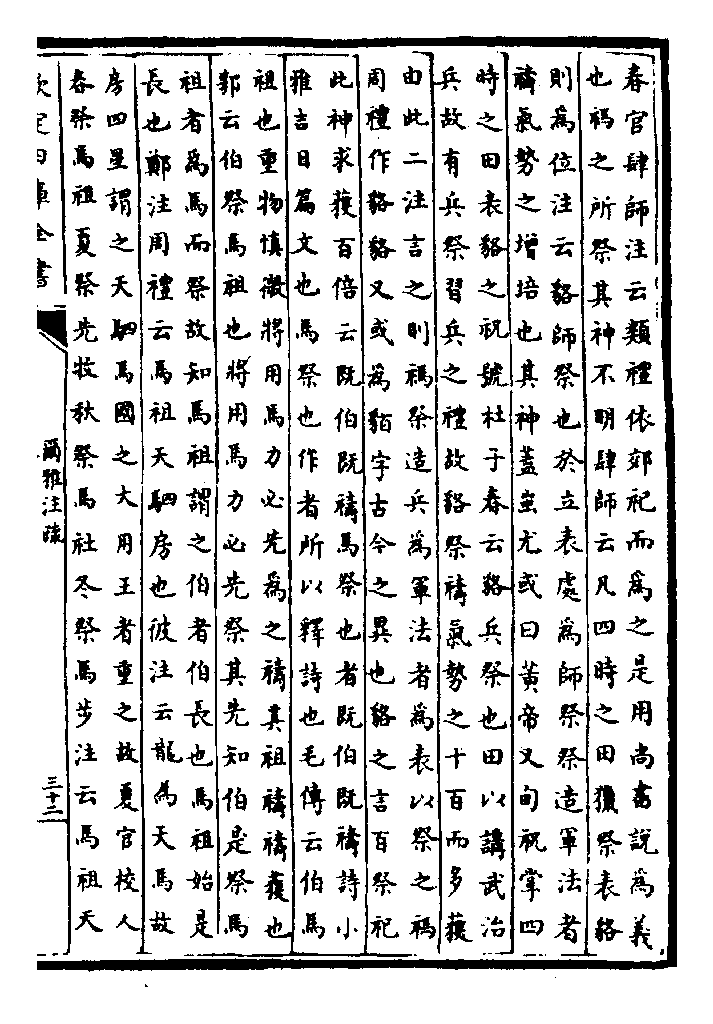 春官肆師注云類禮依郊祀而為之是用尚書說為義
也禡之所祭其神不明肆師云凡四時之田獵祭表貉
則為位注云貉師祭也於立表處為師祭祭造軍法者
禱氣勢之增培也其神蓋蚩尤或曰黃帝又甸祝掌四
時之田表貉之祝號杜子春云貉兵祭也田以講武治
兵故有兵祭習兵之禮故貉祭禱氣勢之十百而多獲
由此二注言之則禡祭造兵為軍法者為表以祭之禡
周禮作貉貉又或為貊字古今之異也貉之言百祭祀
此神求獲百倍云既伯既禱馬祭也者既伯既禱詩小
雅吉日篇文也馬祭也作者所以釋詩也毛傳云伯馬
祖也重物慎微將用馬力必先為之禱其祖禱禱獲也
郭云伯祭馬祖也將用馬力必先祭其先知伯是祭馬
祖者為馬而祭故知馬祖謂之伯者伯長也馬祖始是
長也鄭注周禮云馬祖天駟房也彼注云龍為天馬故
房四星謂之天駟馬國之大用王者重之故夏官校人
春祭馬祖夏祭先牧秋祭馬社冬祭馬步注云馬祖天
欽定四庫全書
爾雅注疏
三十二